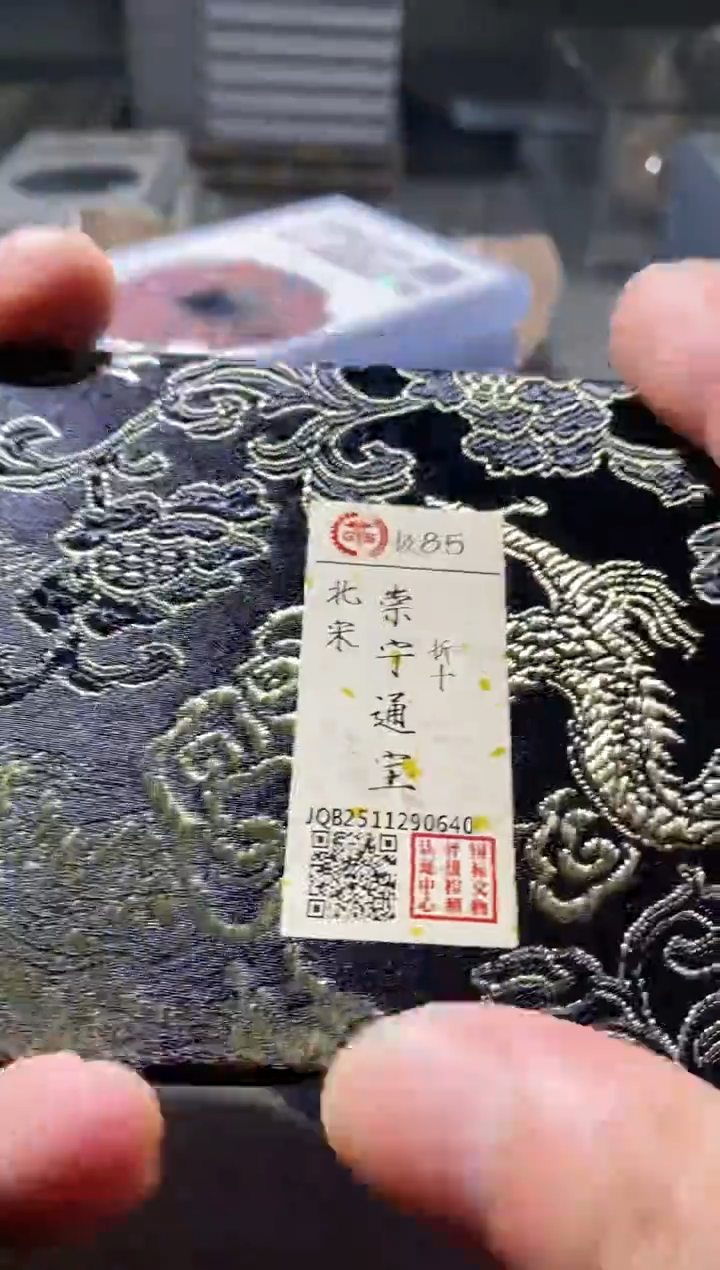 85
北宋
崇宁通宝
折十
JQB2511290640
国标文物
认证中心